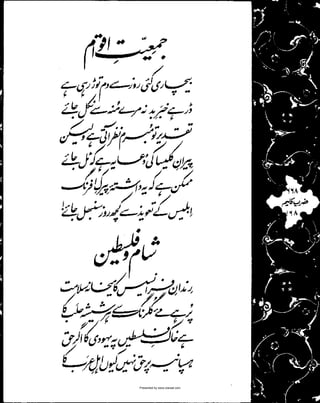 جمعیتِ اقوام
بیچاری کئی روز سے دم توڑ رہی ہے
ڈر ہے خبرِ بد نہ مرے منہ سے نکل جائے
تقدیر تو مبرم نظر آتی ہے ولیکن
پیرانِ کلیسا کی دعا یہ ہے کہ ٹل جائے
ممکن ہے کہ یہ داشتۂ پیرکِ افرنگ
ابلیس کے تعویذ سے کچھ روز سنبھل جائے!
شام و فلسطین
رندانِ فرانسیس کا میخانہ سلامت
پُر ہے مئے گلرنگ سے ہر شیشہ حلب کا
ہے خاکِ فلسطیں پہ یہودی کا اگر حق
ہسپانیہ پر حق نہیں کیوں اہلِ عرب کا
ضربِ کلیم
۱۶۸
Presented by www.iqbalac.com